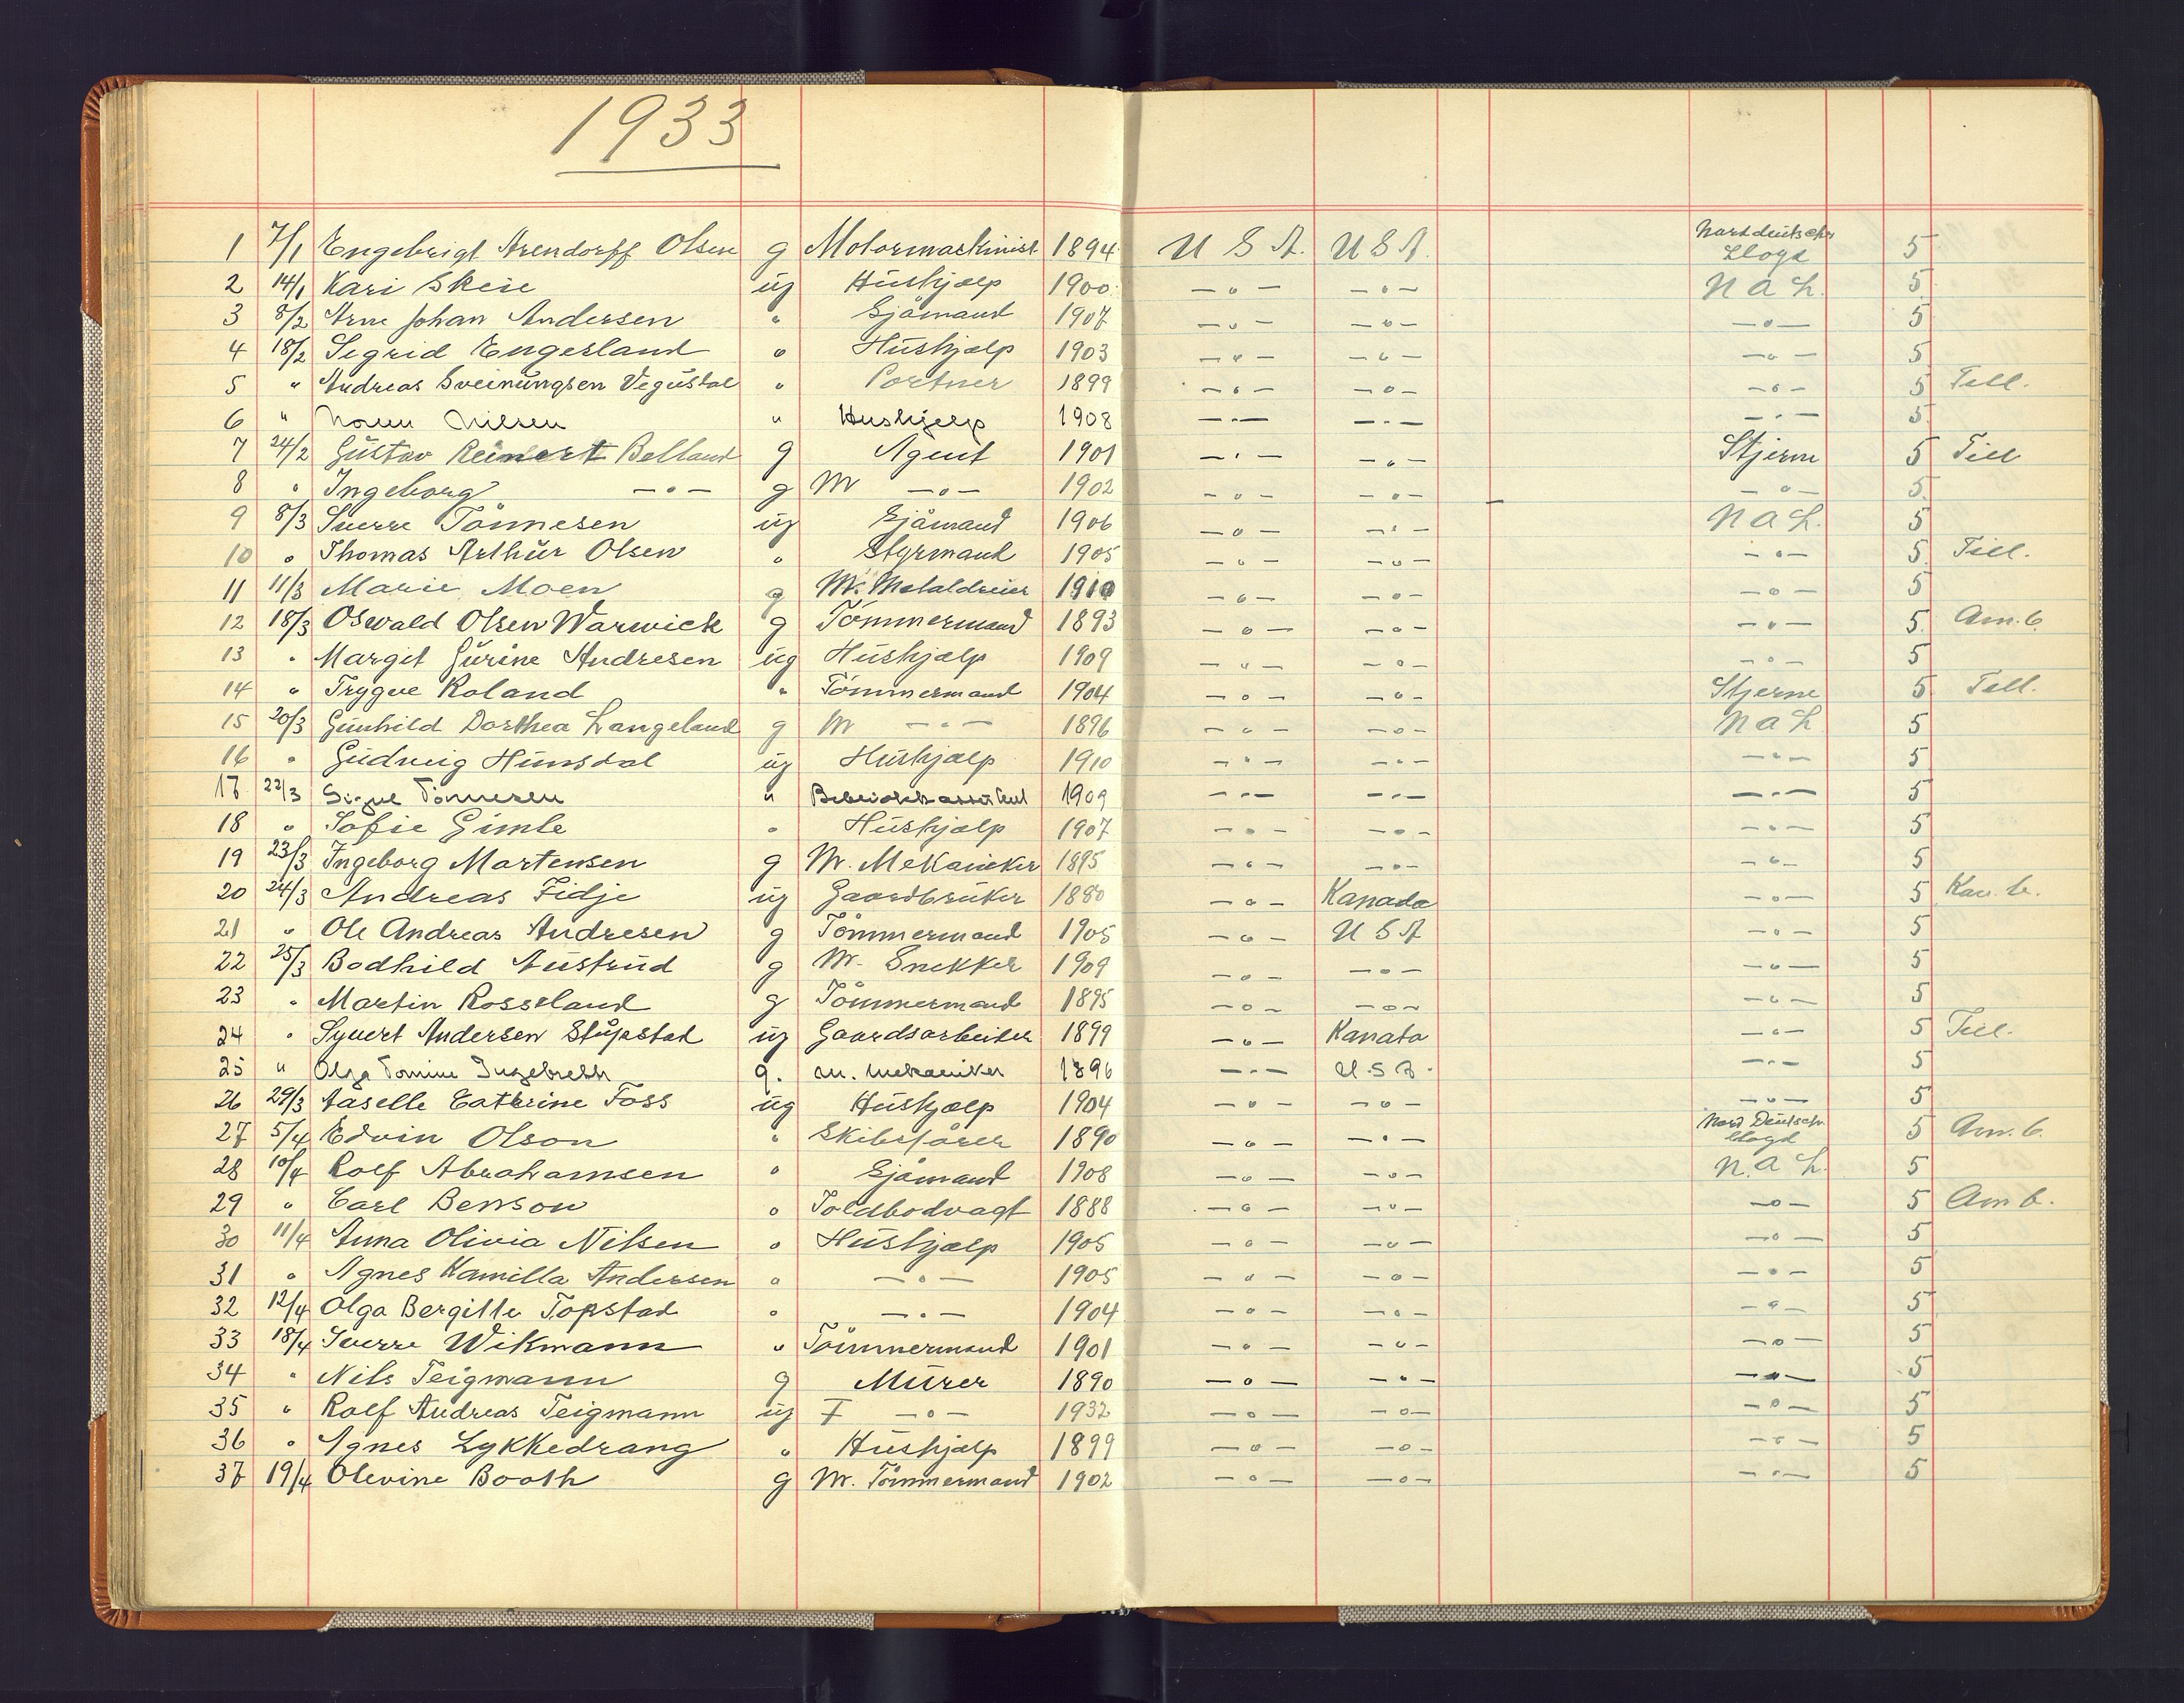 1933
1 7/1 Engebrigt Arendorff Olsen g Motormaskinist 1894 U S A. U S A. Norddeutscher Lloyd 5
2 14/1 Kari Skeie ug Hushjælp 1900 —"— —"— N A L. 5
3 8/2 Arne Johan Andersen " Sjømand 1907 —"— —"— —"— 5
4 18/2 Sigrid Engesland " Hushjælp 1903 —"— —"— —"— 5
5 " Andreas Sveinungsen Vegusdal " Portner 1899 —"— —"— —"— 5 Till.
6 " Nilsen " Hushjelp 1908 —"— —"— —"— 5
7 24/2 Gustav Reinert Belland g Agent 1901 —"— —"— Stjerne 5 Till
8 " Ingeborg —"— g M —"— 1902 —"— —"— —"— 5
9 8/3 Sverre Tönnesen ug Sjømand 1906 —"— —"— N A L. 5
10 " Thomas Arthur Olsen " Styrmand 1905 —"— —"— —"— 5 Till.
11 11/3 Marie Moen g M. Metaldreier 1910 —"— —"— —"— 5
12 18/3 Oswald Olsen Warwick g Tömmermand 1893 —"— —"— —"— 5 Am. b.
13 " Margit Jurine Andresen ug Hushjælp 1909 —"— —"— —"— 5
14 " Trygve Roland " Tömmermand 1904 —"— —"— Stjerne 5 Till.
15 20/3 Gunhild Dorthea Langeland g M —"— 1896 —"— —"— N A L 5
16 " Gudveig Hunsdal ug Hushjælp 1910 —"— —"— —"— 5
17 22/3 Signe Tönnesen " Bibliotekassistent 1909 —"— —"— —"— 5
18 " Sofie Gimle " Hushjælp 1907 —"— —"— —"— 5
19 23/3 Ingeborg Martensen g M. Mekaniker 1895 —"— —"— —"— 5
20 24/3 Andreas Fidje ug Gaardbruker 1880 —"— Kanada —"— 5 Kan. b.
21 " Ole Andreas Andresen g Tömmermand 1905 —"— U S A —"— 5
22 25/3 Bodhild Austrud g M. Snekker 1909 —"— —"— —"— 5
23 " Martin Rosseland g Tömmermand 1895 —"— —"— —"— 5
24 " Syvert Andersen Stupstad ug Gaardsarbeider 1899 —"— Kanada —"— 5 Till.
25 " Olga Tomine Ingebreth g. M. Mekaniker 1896 —"— U.S.A. —"— 5
26 29/3 Aaselle Cathrine Foss ug Hushjælp 1904 —"— —"— —"— 5
27 5/4 Edvin Olson " Skibsförer 1890 —"— —"— Nord Deutsch. Lloyd 5 Am. b.
28 10/4 Rolf Abrahamsen " Sjömand 1908 —"— —"— N. A L. 5
29 " Carl Benson " Toldbodvagt 1888 —"— —"— —"— 5 Am b.
30 11/4 Anna Olivia Nilsen " Hushjælp 1905 —"— —"— —"— 5
31 " Agnes Kamilla Andersen " —"— 1905 —"— —"— —"— 5
32 12/4 Olga Bergitte Topstad " —"— 1904 —"— —"— —"— 5
33 18/4 Sverre Wikmann " Tömmermand 1901 —"— —"— —"— 5
34 " Nils Teigmann g Murer 1890 —"— —"— —"— 5
35 " Rolf Andreas Teigmann ug F —"— 1932 —"— —"— —"— 5
36 " Agnes Lykkedrang " Hushjælp 1899 —"— —"— —"— 5
37 19/4 Olevine Booth g M. Tömmermand 1902 —"— —"— —"— 5